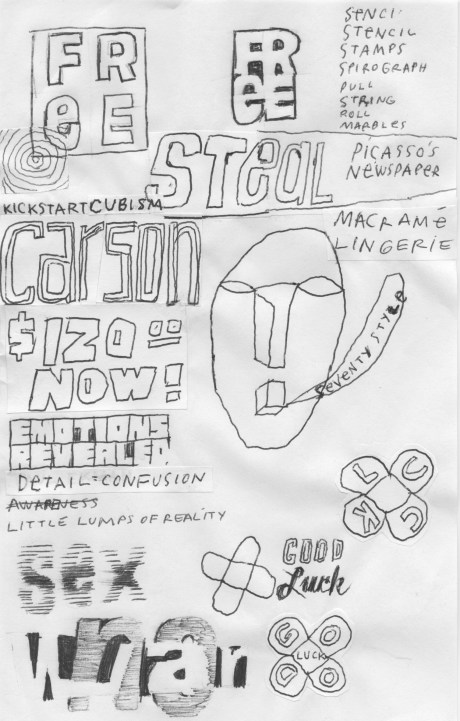 FR
eE
FR
eE
SENCI
STENCIL
STAMPS
SPIROGRAPH
PULL
STRING
ROLL
MARBLES
STeaL
PICASSO'S
NEWSPAPER
KICKSTARTCUBISM
MACRAMÉ
LINGERIE
carson
$120.00
NOW!
SEVENTY STYLE
EMOTIONS
REVEALED
DETAIL=CONFUSION
AWARENESS
LITTLE LUMPS OF REALITY
LUCK
sex
GOOD
Luck
GOOD
LUCK